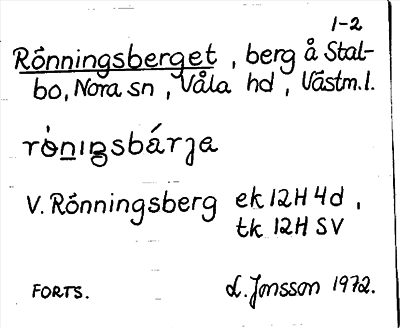 1-2
Rönningsberget, berg å Stal-
bo, Nora sn, Våla hd, Västm.l.
V. Rönningsberg ek 12H4d,
tk 12H SV
FORTS. L. Jonsson 1972.